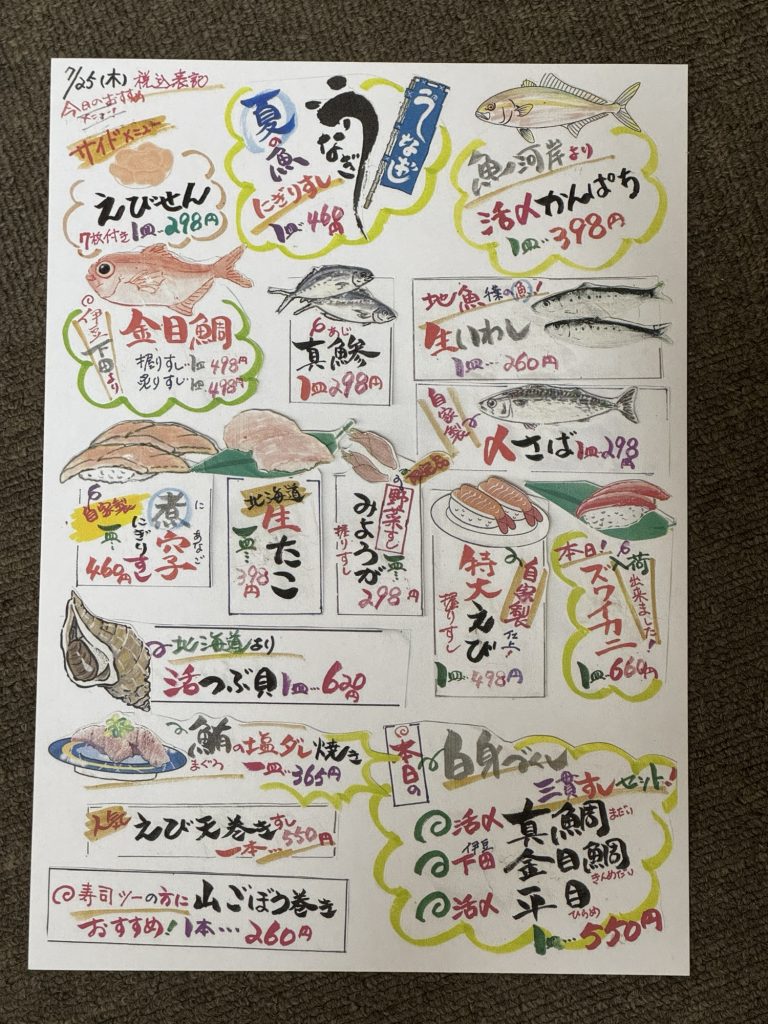 7/25(木) 税込表記
今日のおすすめ
メニュー
サイドメニュー
えびせん
7枚付き 1皿…298円
夏の魚
うなぎ
にぎりずし
1皿…460円
うなぎ
魚河岸より
活〆かんぱち
1皿…398円
伊豆
下田より
金目鯛
握りすし…1皿 498円
炙りすし…1皿 498円
あじ
真鯵
1皿298円
地魚 種の魚!
生いわし
1皿…260円
自家製
〆さば 1皿…298円
自家製
煮穴子
に あなご
にぎりすし
一皿…
460円
北海道
生たこ
一皿…
398円
野菜すし
みょうが
握りずし
一皿…
298円
自家製
仕上!
特大えび
握りずし
1皿…498円
本日!
入荷出来ました!
ズワイカニ
1皿…660円
北海道より
活つぶ貝 1皿…620円
鮪の塩ダレ焼き
まぐろ
一皿…365円
人気
えび天巻きすし
一本…550円
寿司ツーの方に 山ごぼう巻き
おすすめ! 1本…260円
本日の
白身づくし
三貫すしセット!
活〆 真鯛 まだい
伊豆
下田 金目鯛 きんめだい
活〆 平目 ひらめ
1皿…550円